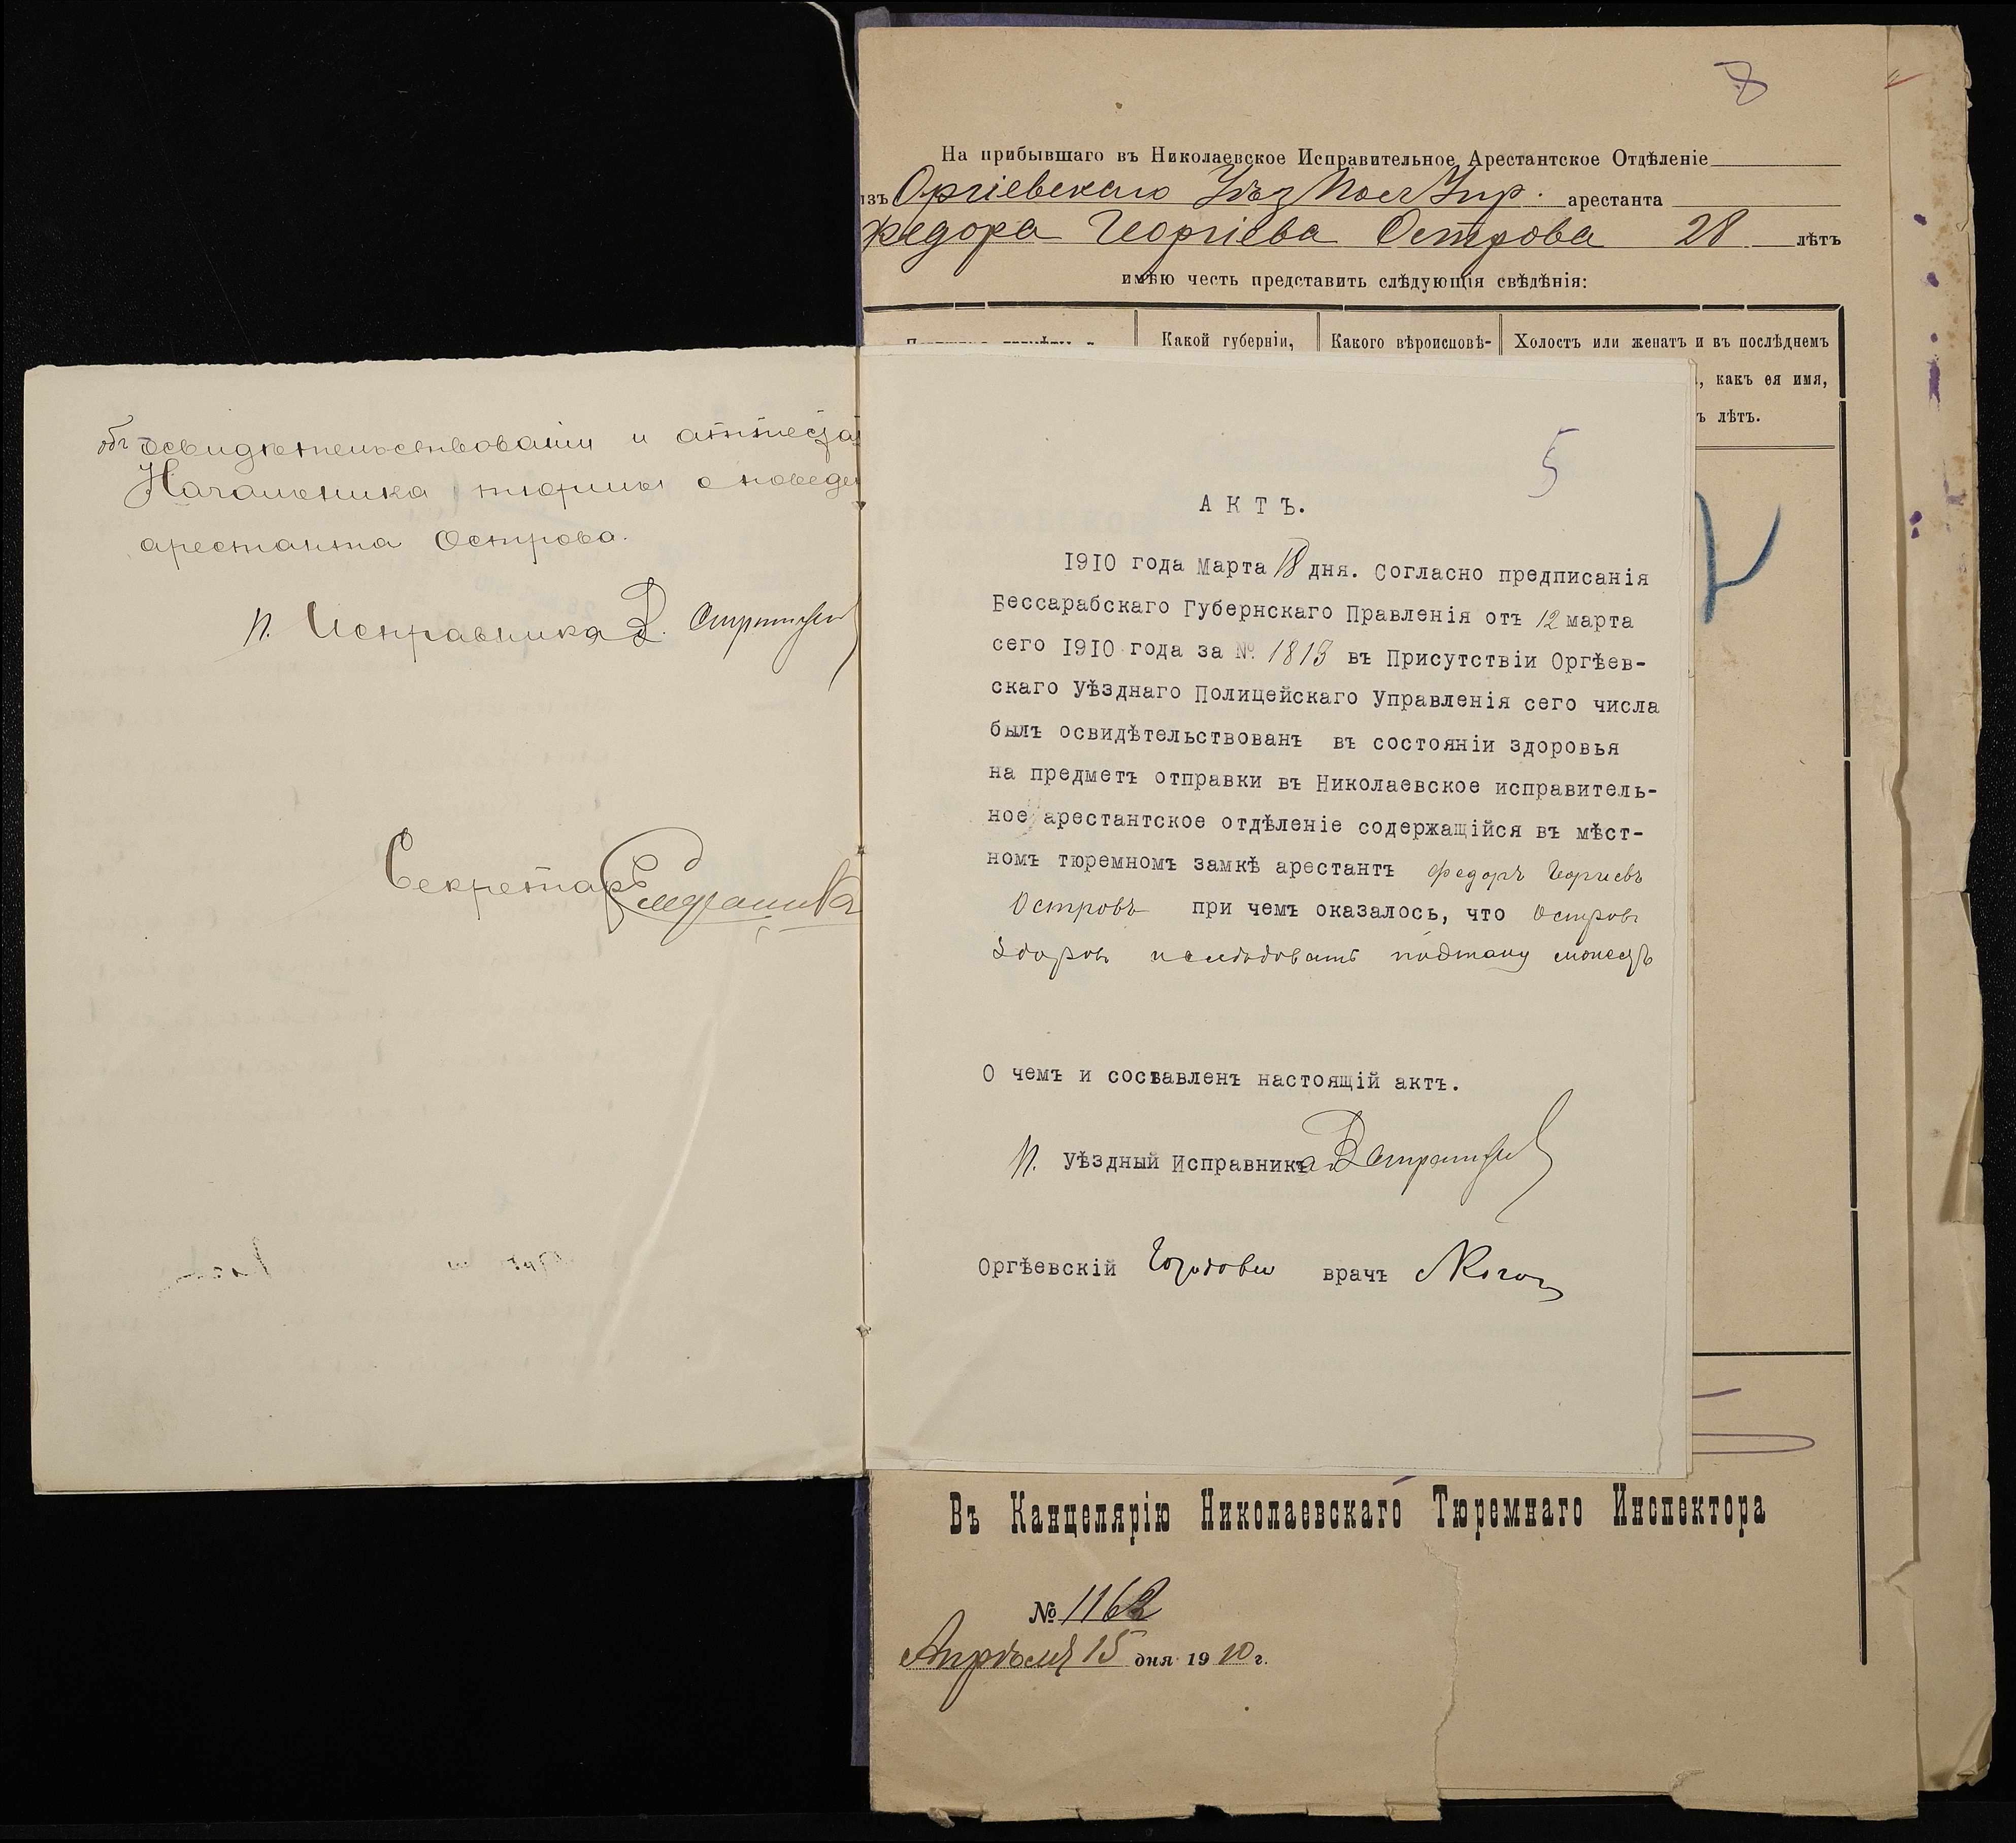 объ освидѣтельствованіи и аттеста
Начальника тюрьмы о поведе
арестанта Острова.
п. Исправника
Секретарь
8
На прибывшаго въ Николаевское Исправительное Арестантское Отдѣленіе
изъ Оргіевскаго Уѣз Пол Упр. арестанта
Федора Георгіева Острова 28 лѣтъ
имѣю честь представить слѣдующія свѣдѣнія:
Какой губерніи,
Какого вѣроисповѣ-
Холостъ или женатъ и въ послѣднемъ
, какъ ея имя,
ъ лѣтъ.
5
АКТЪ.
1910 года Марта 18 дня. Согласно предписанія
Бессарабскаго Губернскаго Правленія отъ 12 марта
сего 1910 года за № 1813 въ Присутствіи Оргѣев-
скаго Уѣзднаго Полицейскаго Управленія сего числа
былъ освидѣтельствованъ въ состояніи здоровья
на предметъ отправки въ Николаевское исправитель-
ное арестантское отдѣленіе содержащійся въ мѣст-
номъ тюремномъ замкѣ арестантъ Федоръ Георгіевъ
Островъ при чемъ оказалось, что Островъ
здоровъ и слѣдовать по этапу можетъ
О чемъ и составленъ настоящій актъ.
п. Уѣздный Исправника
Оргѣевскій Городовой врачъ
Въ Канцелярію Николаевскаго Тюремнаго Инспектора
№ 1162
Апрѣля 15 дня 1910 г.